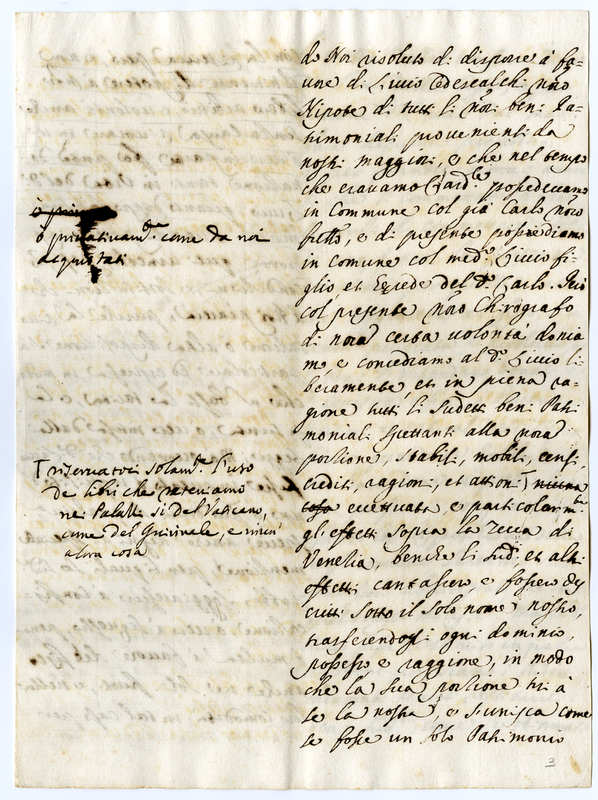 do Noi risoluto di disporre à fa-
vore di Livio Odescalchi nr̃o
Nipote di tutti li nr̃i beni Pa-
trimoniali provenienti da
nostri maggiori, e che nel tempo
che eravamo Card.le possedevamo
in Commune col già Carlo nr̃o
frṫello, e di presente possediamo
in comune col med.o Livio fi-
glio, et Erede del d.o Carlo. Però
col presente nr̃o Chirografo
di nr̃a certa volontà donia
mo, e concediamo al d.o Livio li-
beramente, et in piena ra-
gione tutti li sudetti beni Patri
moniali spettanti alla nr̃a
portione, stabili, mobili, censi,
crediti, ragioni, et attioni niuna
cosa eccettuata, e particolarm.te
gl'effetti sopra la Zecca di
Venetia, benche li sud.i et altri
effetti cantassero, e fossero des
critti sotto il solo nome nostro,
trasferendogli ogni dominio,
possesso e raggione, in modo
che la sua portione tiri à
se la nostra, e s'unisca come
se fosse un solo Patrimonio
3
ò privativam.te come da noi
acquistati
riservatoci solam.te l'uso
de libri che reteniamo
ne Palazzi si del Vaticano,
come del Quirinale, e niun'
altra cosa